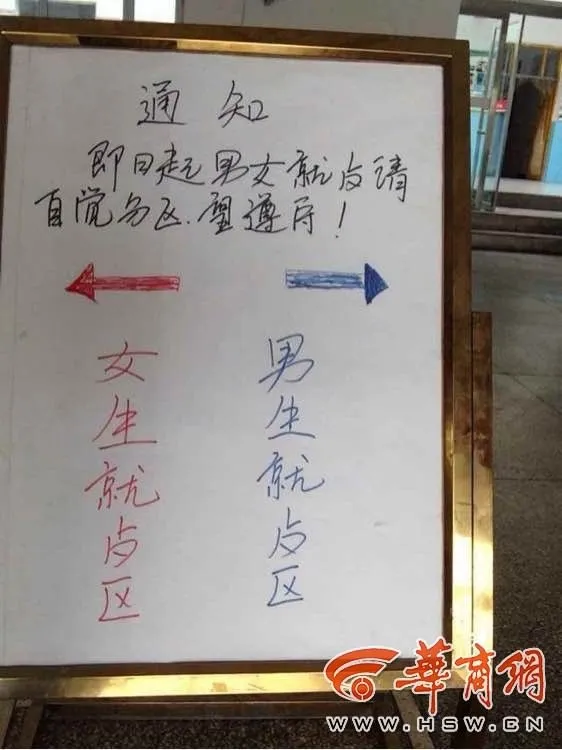 通知
即日起男女就歺请
自觉分区.望遵守!
女生就歺区
男生就歺区
華商網
WWW.HSW.CN